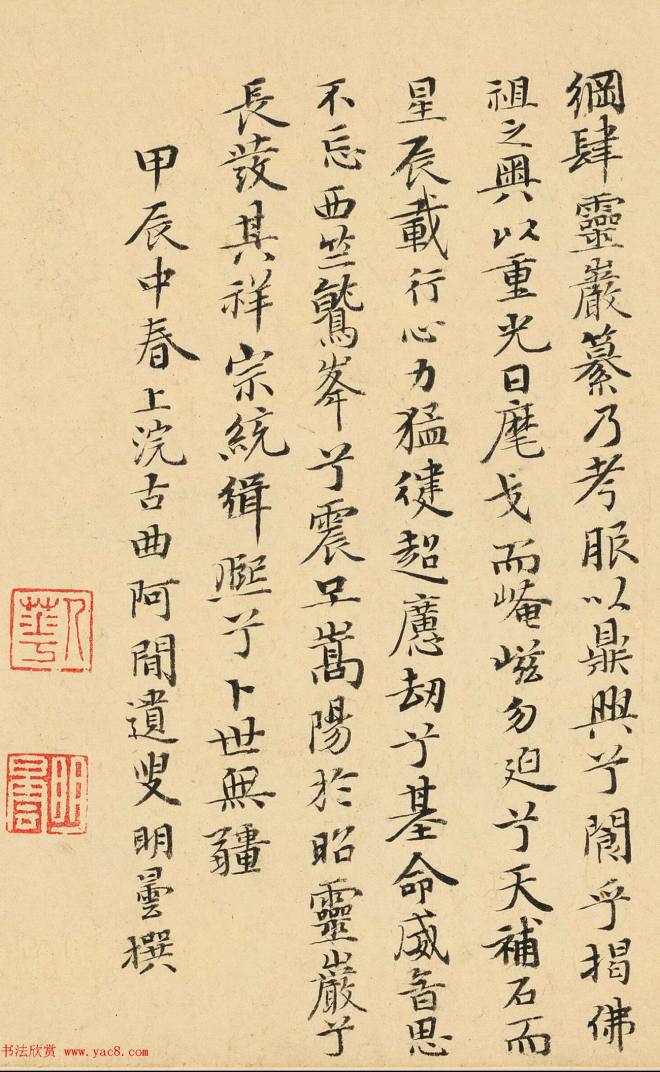 綱肆靈巖纂乃考眂以鼎興兮闇乎揭佛
祖之奧以重光日麾戈而崦嵫勿迫兮天補石而
星辰載行心力猛健超塵劫兮基命威音思
不忘西竺鷲峯兮震旦嵩陽於昭靈巖兮
長發其祥宗統緝熙兮卜世無疆
甲辰中春上浣古曲阿閒遺叟明曇撰
书法欣赏 www.yac8.com